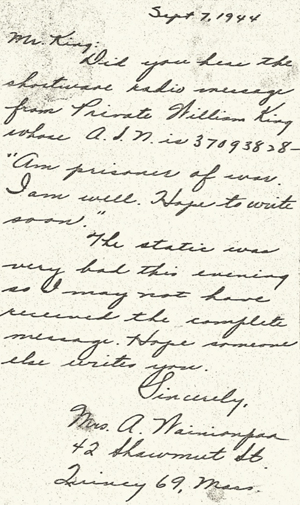 Sept 7, 1944
Mr. King:
Did you hear the
shortwave radio message
from Private William King
whose A.S.N. is 37093828-
"Am prisoner of war.
I am well. Hope to write
soon."
The static was
very bad this evening
so I may not have
received the complete
message. Hope someone
else writes you.
Sincerely,
Mrs. A. Wainionpaa
42 Shawmut St.
Quincy 69, Mass.